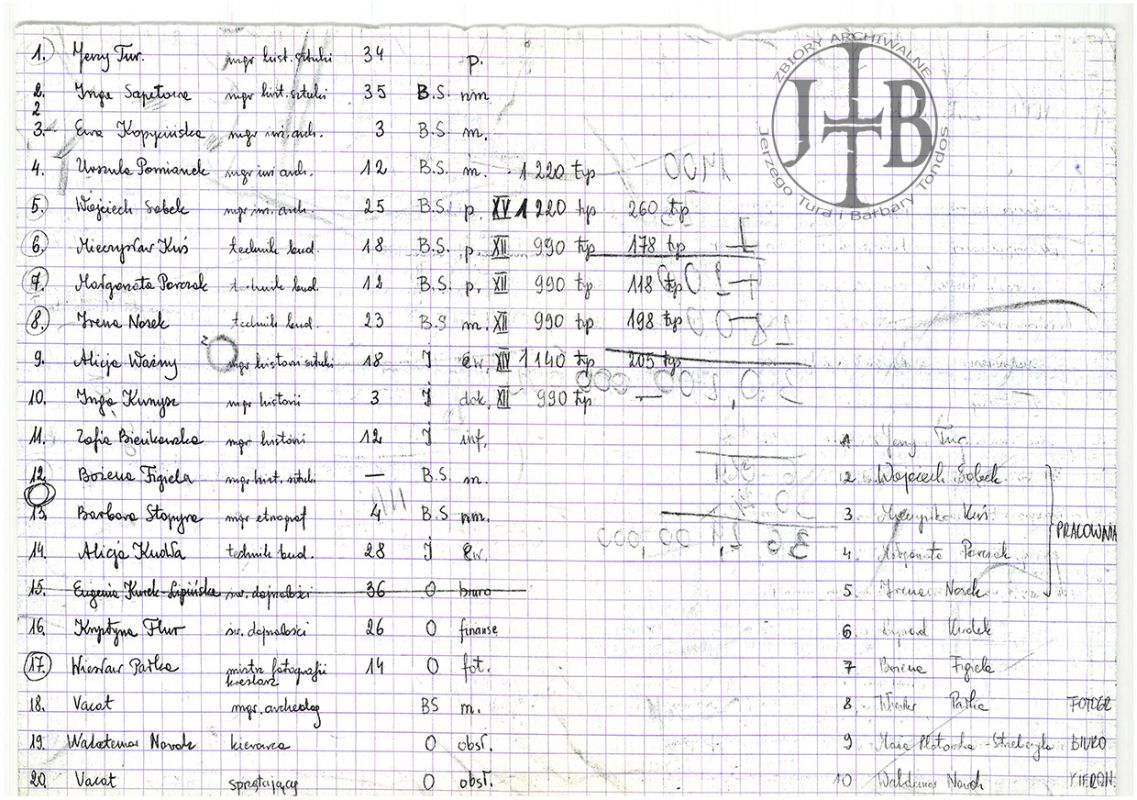 1. Jerzy Tur. mgr hist. sztuki 34 p.
2. Inga Sapetowa mgr hist. sztuki 35 B.S. nm
2
3. Ewa Kopycińska mgr inż. arch. 3 B.S. m.
4. Urszula Pomianek mgr inż arch. 12 B.S. m. 1 220 typ
5. Wojciech Sobek mgr inż. arch. 25 B.S. p. XV 1 220 typ 260 typ
6. Mieczysław Kuś technik bud. 18 B.S. p. XII 990 typ 178 typ
7. Małgorzata Porczak technik bud. 12 B.S. p. XII 990 typ 118 typ
8. Irena Nosek technik bud. 23 B.S m. XII 990 typ 198 typ
9. Alicja Ważny mgr historii sztuki 18 J ew. XIV 1 140 typ 205 typ
10. Inga Kunysz mgr historii 3 J dok. XII 990 typ —
11. Zofia Bieńkowska mgr historii 12 J inf.
12. Bożena Figiela mgr hist. sztuki — B.S. m.
13. Barbara Stopyra mgr etnograf 4 B.S nm.
14. Alicja Kudła technik bud. 28 J ew.
15. Eugenia Kurek-Lipińska św. dojrzałości 36 O biuro
16. Krystyna Flur św. dojrzałości 26 O finanse
17. Wiesław Pałka mistrz fotografii 14 O fot.
kreślarz
18. Vacat mgr. archeolog BS m.
19. Waldemar Nowak kierowca O obsł.
20. Vacat sprzątający O obsł.
1 Jerzy Tur
2 Wojciech Sobek
3 Kuś
PRACOWNIA
4 Małgorzata Porczak
5 Irena Nosek
6
7 Bożena Figiela
8 Wiesław Pałka FOTOGR
9 BIURO
10 Waldemar Nowak KIEROW.
ZBIORY ARCHIWALNE
J B
Jerzego Tura i Barbary Tondos